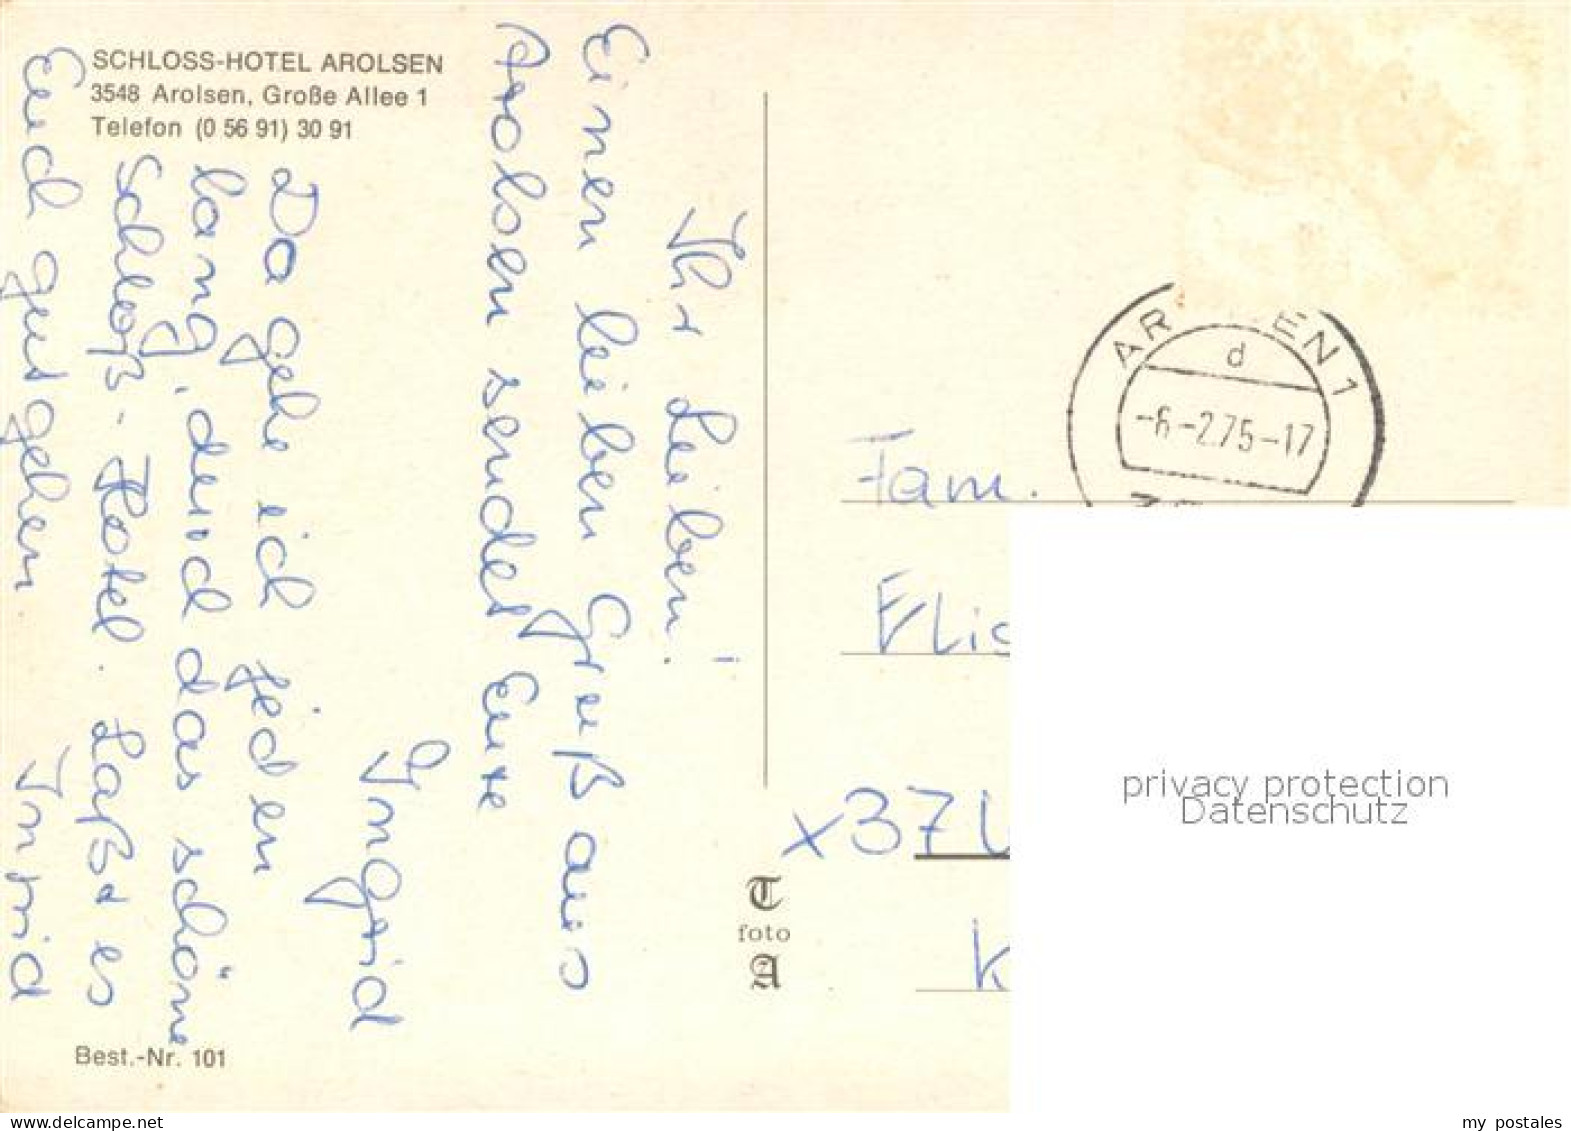 SCHLOSS-HOTEL AROLSEN
3548 Arolsen, Große Allee 1
Telefon (0 56 91) 30 91
Ihr Lieben!
Einen lieben Gruß aus
Arolsen sendet Eure
Ingrid
Da gehe ich jeden
lang, durch das schöne
Schloß-Hotel. Laßt es
Euch gut gehen.
Ingrid
AR EN 1
d
-6-2.75-17
Fam.
Elis
x37
K
T
foto
A
Best.-Nr. 101
privacy protection
Datenschutz
my postales